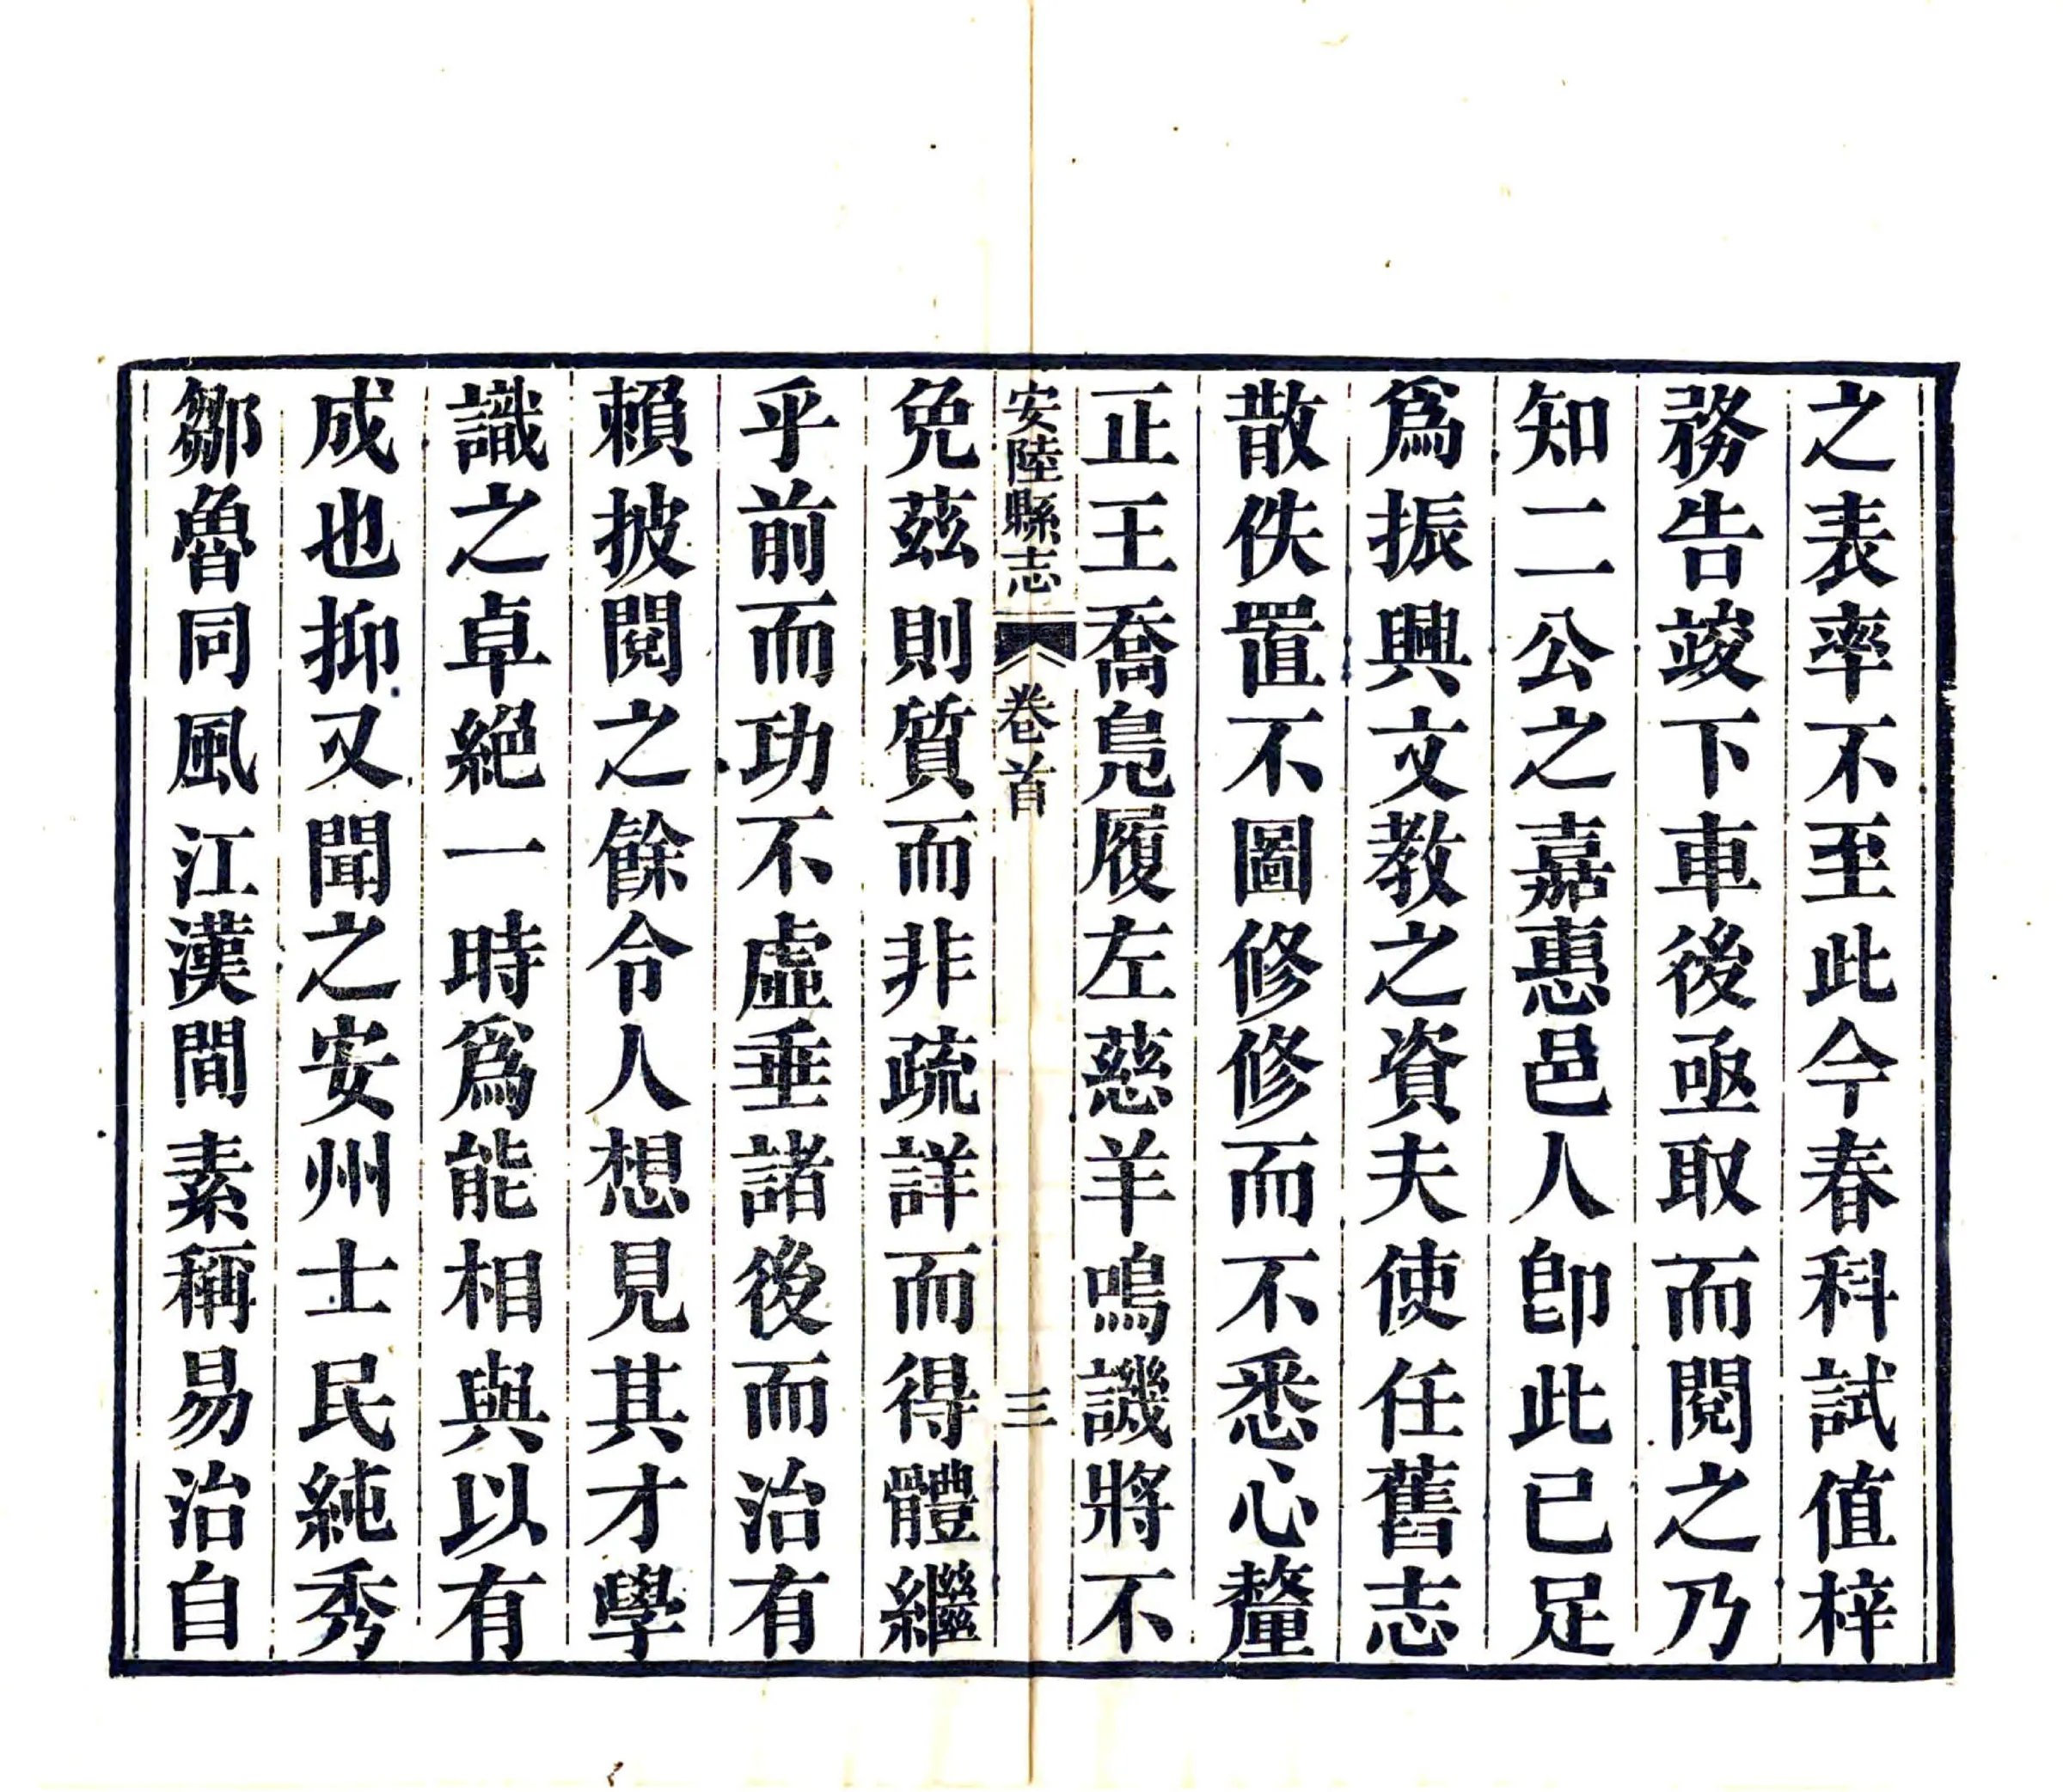 之表率不至此今春科試值梓
務告竣下車後亟取而閱之乃
知二公之嘉惠邑人卽此已足
爲振興文教之資夫使任舊志
散佚置不圖修修而不悉心釐
正王喬鳧履左慈羊鳴譏將不
安陸縣志 卷首 三
免茲則質而非疏詳而得體繼
乎前而功不虛垂諸後而治有
賴披閱之餘令人想見其才學
識之卓絕一時爲能相與以有
成也抑又聞之安州士民純秀
鄒魯同風江漢間素稱易治自